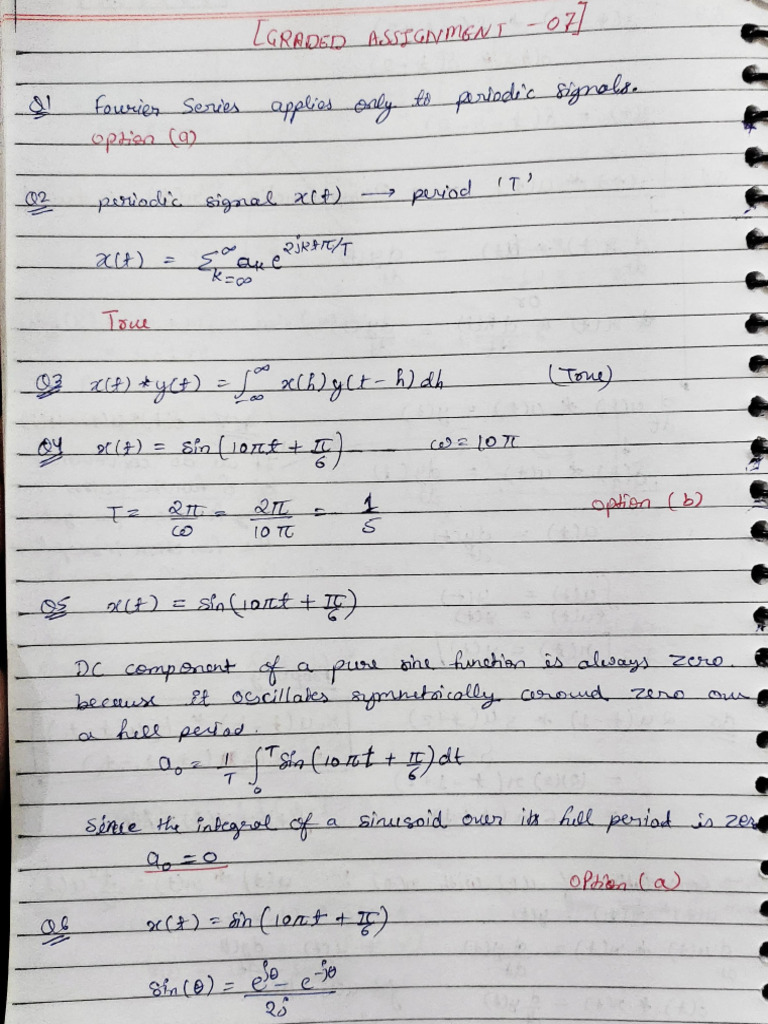 [GRADED ASSIGNMENT - 07]
Q1 Fourier Series applies only to periodic signals.
option (a)
Q2 periodic signal x(t) → period 'T'
x(t) = Σ_{k=∞}^{∞} a_k e^{2jktπ/T}
True
Q3 x(t) * y(t) = ∫_{-∞}^{∞} x(h) y(t-h) dh (True)
Q4 x(t) = sin(10πt + π/6) ---- ω = 10π
T = 2π/ω = 2π/10π = 1/5 option (b)
Q5 x(t) = sin(10πt + π/6)
DC component of a pure sine function is always zero.
because it oscillates symmetrically around zero over
a full period.
a₀ = 1/T ∫₀^T sin(10πt + π/6) dt
Since the integral of a sinusoid over its full period is zero
a₀ = 0
OPtion (a)
Q6 x(t) = sin(10πt + π/6)
sin(θ) = (e^{jθ} - e^{-jθ})/2j